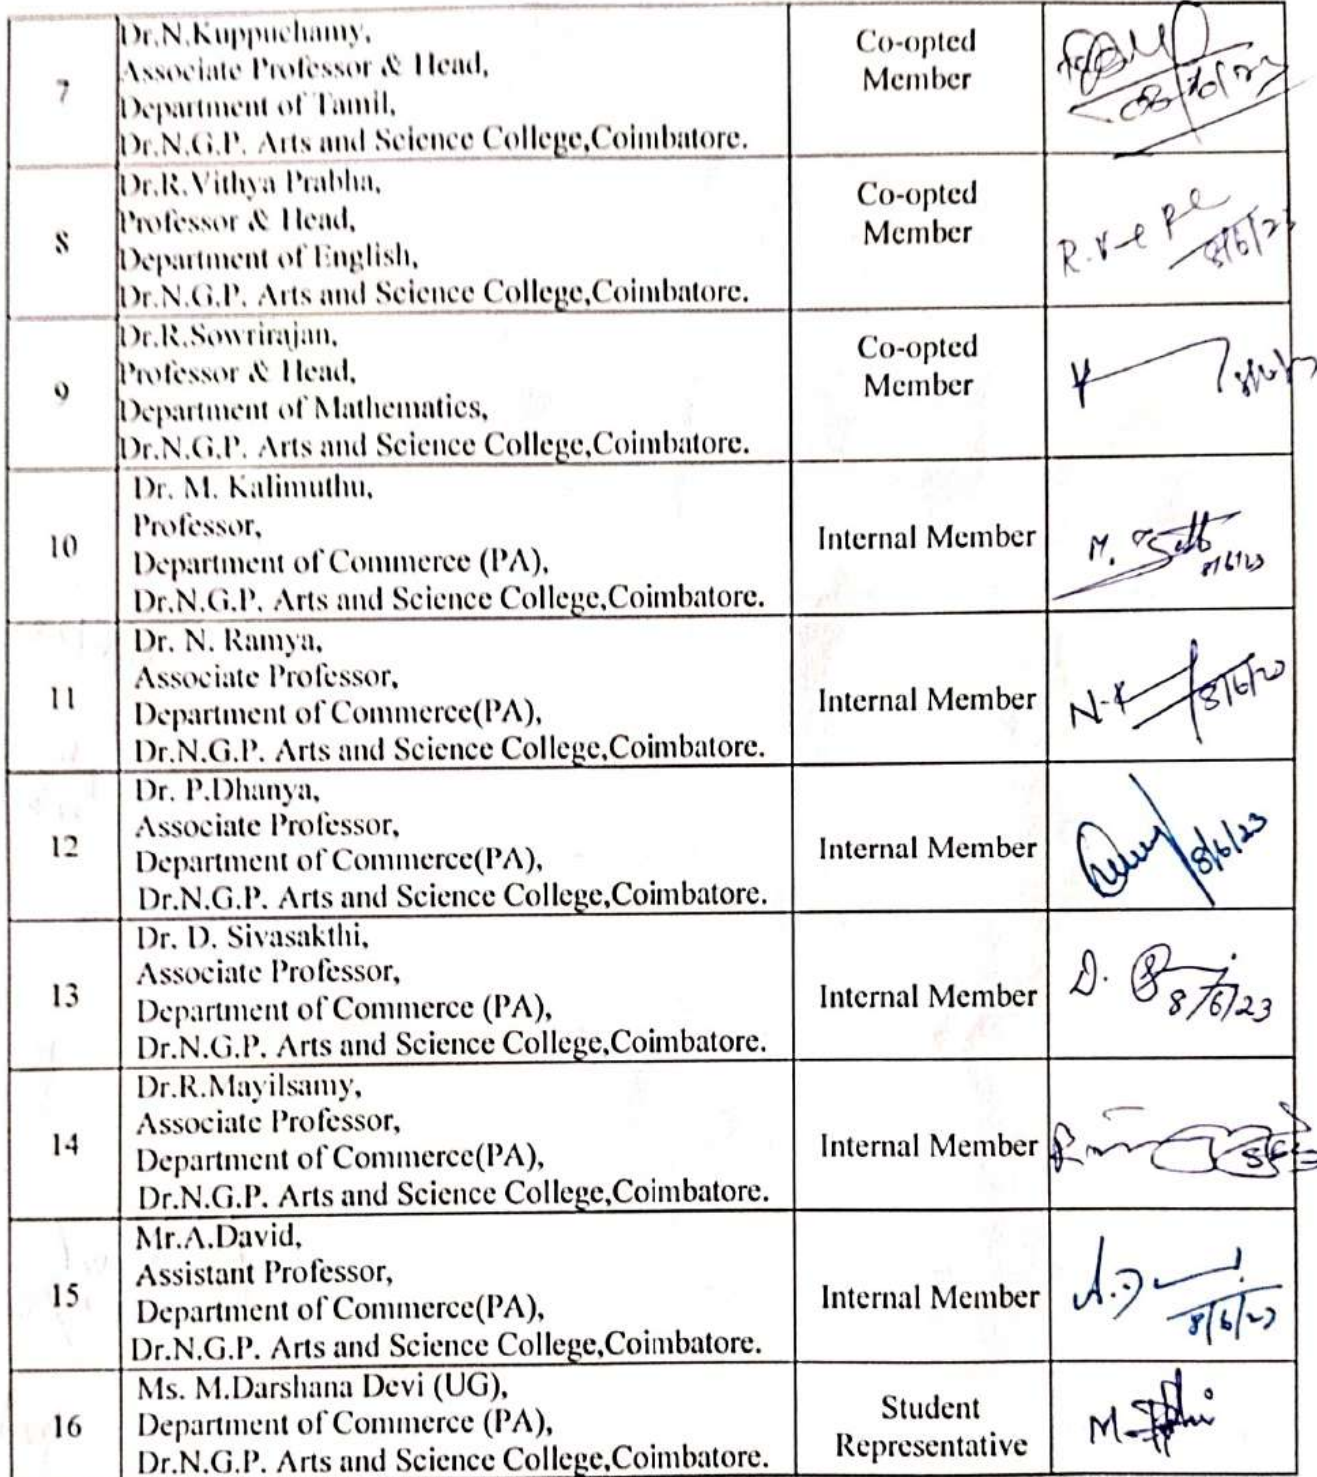 7
Dr.N.Kuppuchamy,
Associate Professor & Head,
Department of Tamil,
Dr.N.G.P. Arts and Science College,Coimbatore.
Co-opted
Member
8
Dr.R.Vithya Prabha,
Professor & Head,
Department of English,
Dr.N.G.P. Arts and Science College,Coimbatore.
Co-opted
Member
8/6/23
9
Dr.R.Sowrirajan,
Professor & Head,
Department of Mathematics,
Dr.N.G.P. Arts and Science College,Coimbatore.
Co-opted
Member
10
Dr. M. Kalimuthu,
Professor,
Department of Commerce (PA),
Dr.N.G.P. Arts and Science College,Coimbatore.
Internal Member
M.
8/6/23
11
Dr. N. Ramya,
Associate Professor,
Department of Commerce(PA),
Dr.N.G.P. Arts and Science College,Coimbatore.
Internal Member
12
Dr. P.Dhanya,
Associate Professor,
Department of Commerce(PA),
Dr.N.G.P. Arts and Science College,Coimbatore.
Internal Member
8/6/23
13
Dr. D. Sivasakthi,
Associate Professor,
Department of Commerce (PA),
Dr.N.G.P. Arts and Science College,Coimbatore.
Internal Member
D.
8/6/23
14
Dr.R.Mayilsamy,
Associate Professor,
Department of Commerce(PA),
Dr.N.G.P. Arts and Science College,Coimbatore.
Internal Member
15
Mr.A.David,
Assistant Professor,
Department of Commerce(PA),
Dr.N.G.P. Arts and Science College,Coimbatore.
Internal Member
8/6/23
16
Ms. M.Darshana Devi (UG),
Department of Commerce (PA),
Dr.N.G.P. Arts and Science College,Coimbatore.
Student
Representative